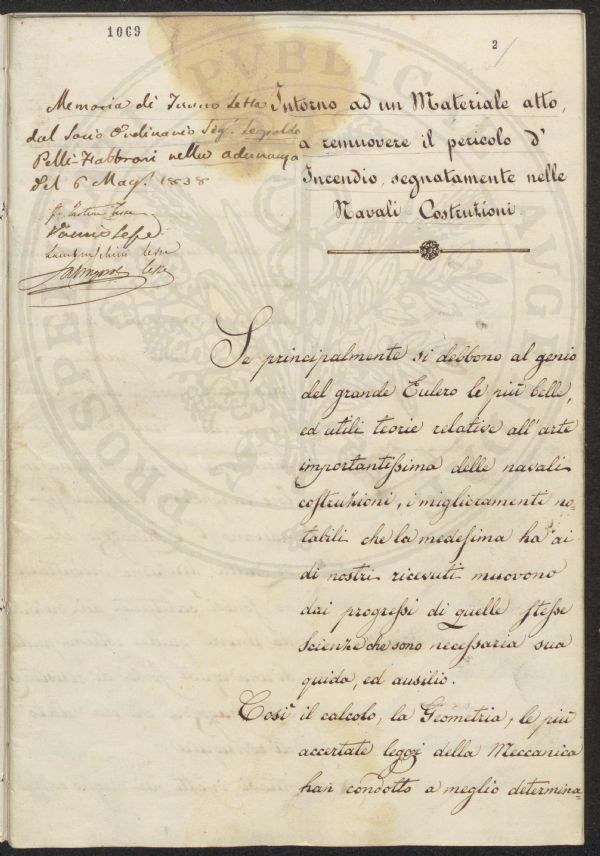 1069
2
Memoria di Turno letta
dal Socio Ordinario Sigr. Leopoldo
Pelli-Fabbroni nella adunanza
del 6 Magº. 1838
Intorno ad un Materiale atto,
a remuovere il pericolo d'
Incendio, segnatamente nelle
Navali Costruzioni.
Se principalmente si debbono al genio
del grande Eulero le più belle,
ed utili teorie relative all'arte
importantissima delle navali
costruzioni, i miglioramenti no=
tabili che la medesima ha ai
dì nostri ricevuti muovono
dai progressi di quelle stesse
scienze che sono necessaria sua
guida, ed ausilio.
Così il calcolo, la Geometria, le più
accertate leggi della Meccanica
han condotto a meglio determina=